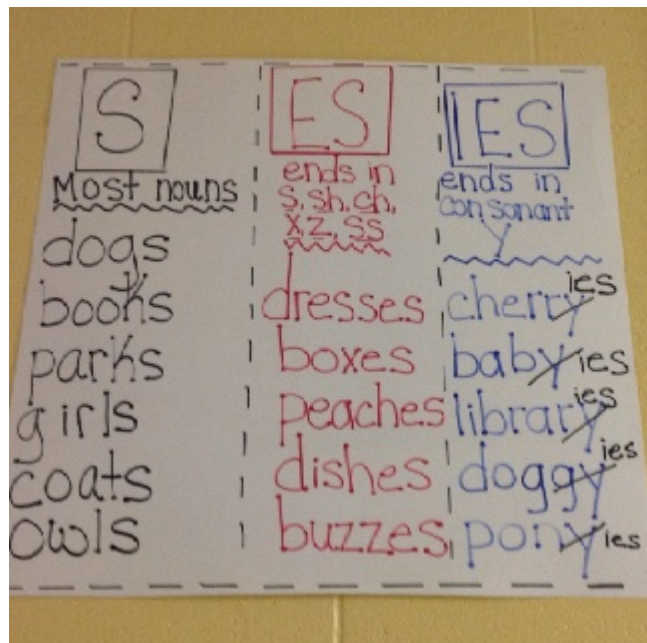 S
Most nouns
dogs
books
parks
girls
coats
owls
ES
ends in
s, sh, ch,
x, z, ss
dresses
boxes
peaches
dishes
buzzes
IES
ends in
consonant
y
cherry ies
baby ies
library ies
doggy ies
pony ies